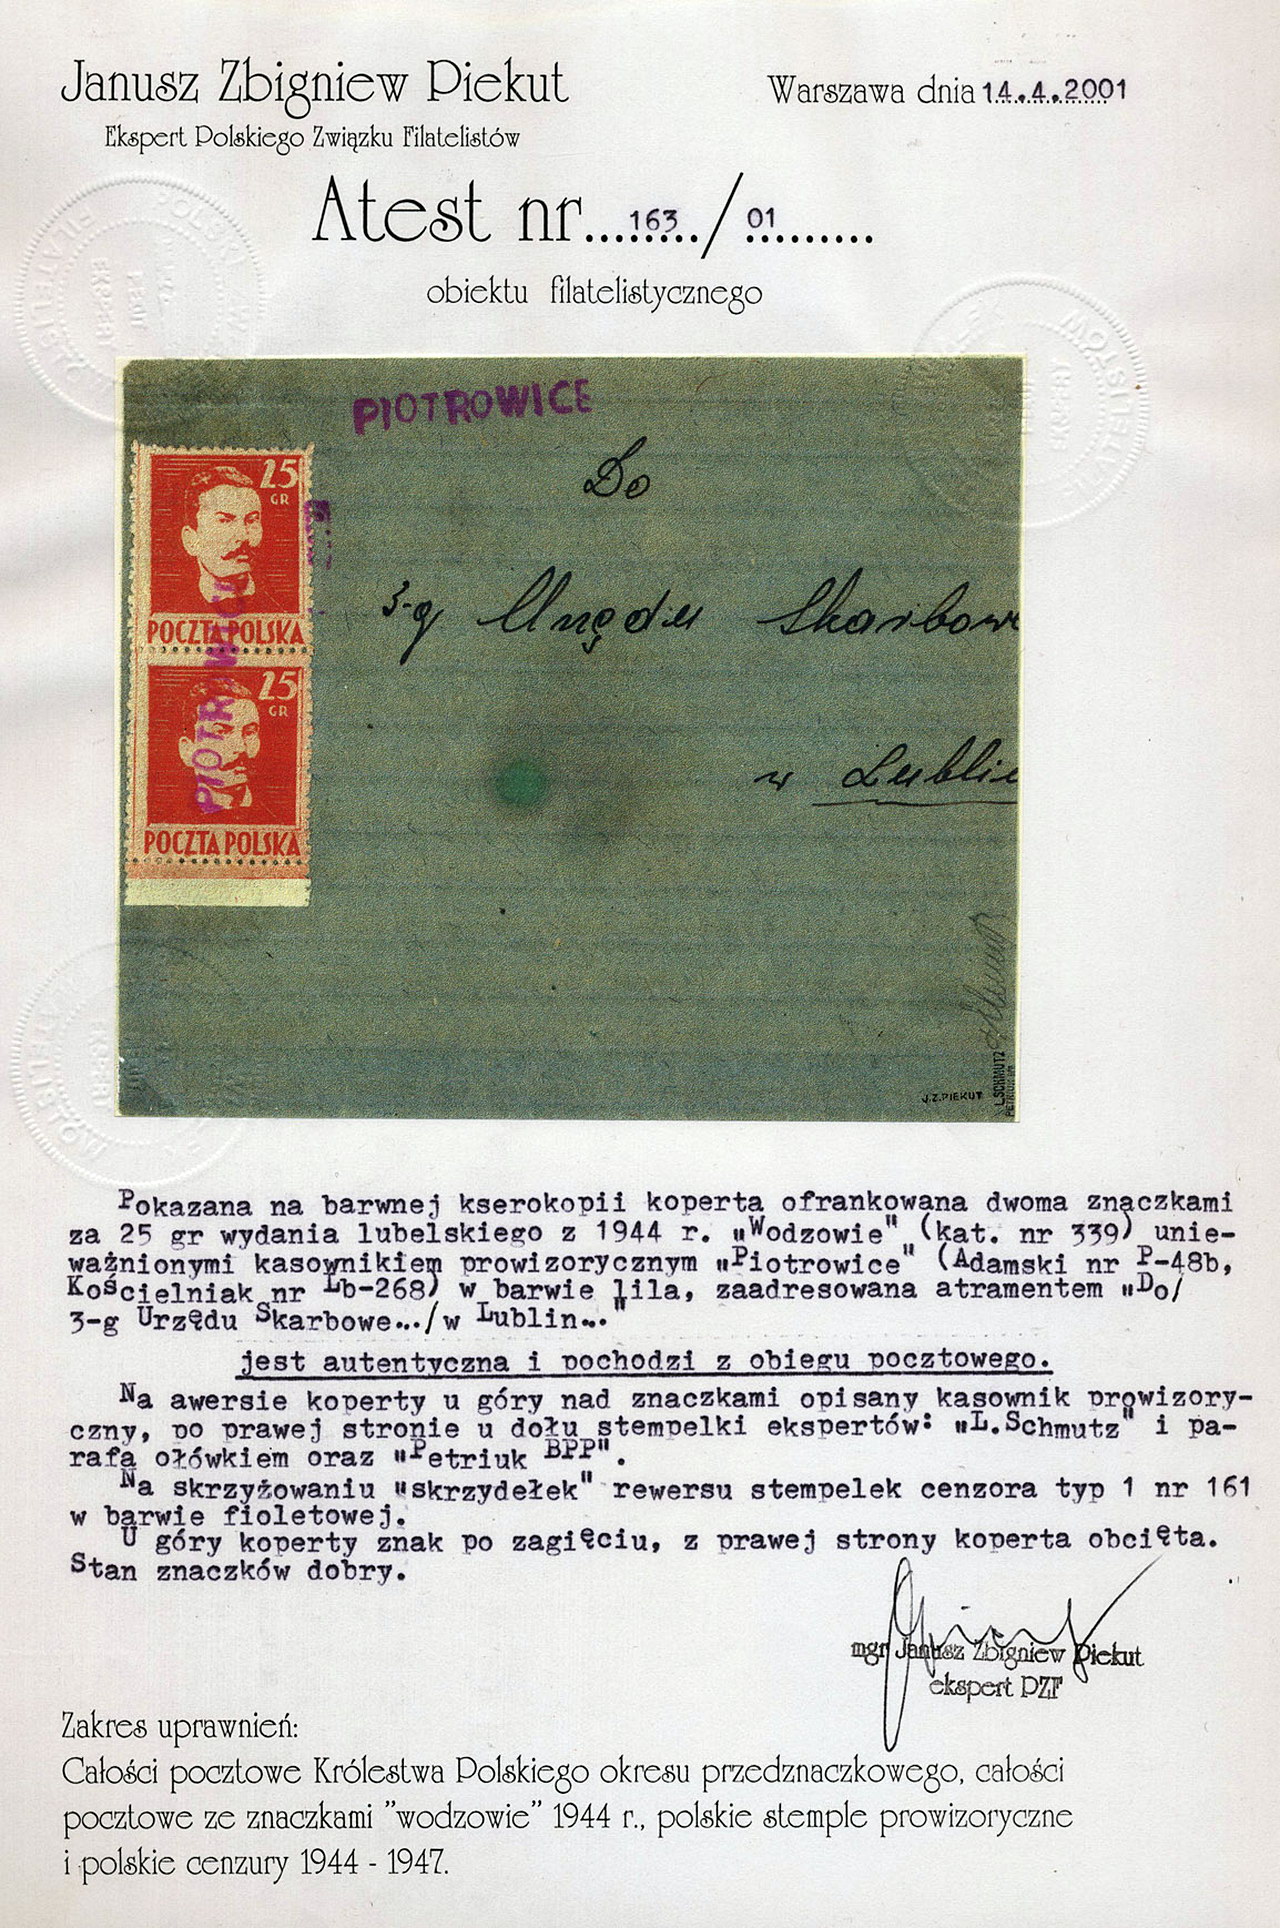 Janusz Zbigniew Piekut
Warszawa dnia 14.4.2001
Ekspert Polskiego Związku Filatelistów
Atest nr....163../..01........
obiektu filatelistycznego
PIOTROWICE
Do
25
GR
3-g Urzędu Skarbowe
POCZTA POLSKA
25
GR
PIOTROWICE
w Lublin
POCZTA POLSKA
J.Z.PIEKUT
L.SCHMUTZ
Pokazana na barwnej kserokopii koperta ofrankowana dwoma znaczkami
za 25 gr wydania lubelskiego z 1944 r. „Wodzowie" (kat. nr 339) unie-
ważnionymi kasownikiem prowizorycznym „Piotrowice" (Adamski nr P-48b,
Kościelniak nr Lb-268) w barwie lila, zaadresowana atramentem „Do/
3-g Urzędu Skarbowe../w Lublin.."
jest autentyczna i pochodzi z obiegu pocztowego.
Na awersie koperty u góry nad znaczkami opisany kasownik prowizory-
czny, po prawej stronie u dołu stempelki ekspertów: „L.Schmutz" i pa-
rafą ołówkiem oraz „Petriuk BPP".
Na skrzyżowaniu „skrzydełek" rewersu stempelek cenzora typ 1 nr 161
w barwie fioletowej.
U góry koperty znak po zagięciu, z prawej strony koperta obcięta.
Stan znaczków dobry.
mgr Janusz Zbigniew Piekut
ekspert PZF
Zakres uprawnień:
Całości pocztowe Królestwa Polskiego okresu przedznaczkowego, całości
pocztowe ze znaczkami "wodzowie" 1944 r., polskie stemple prowizoryczne
i polskie cenzury 1944 - 1947.